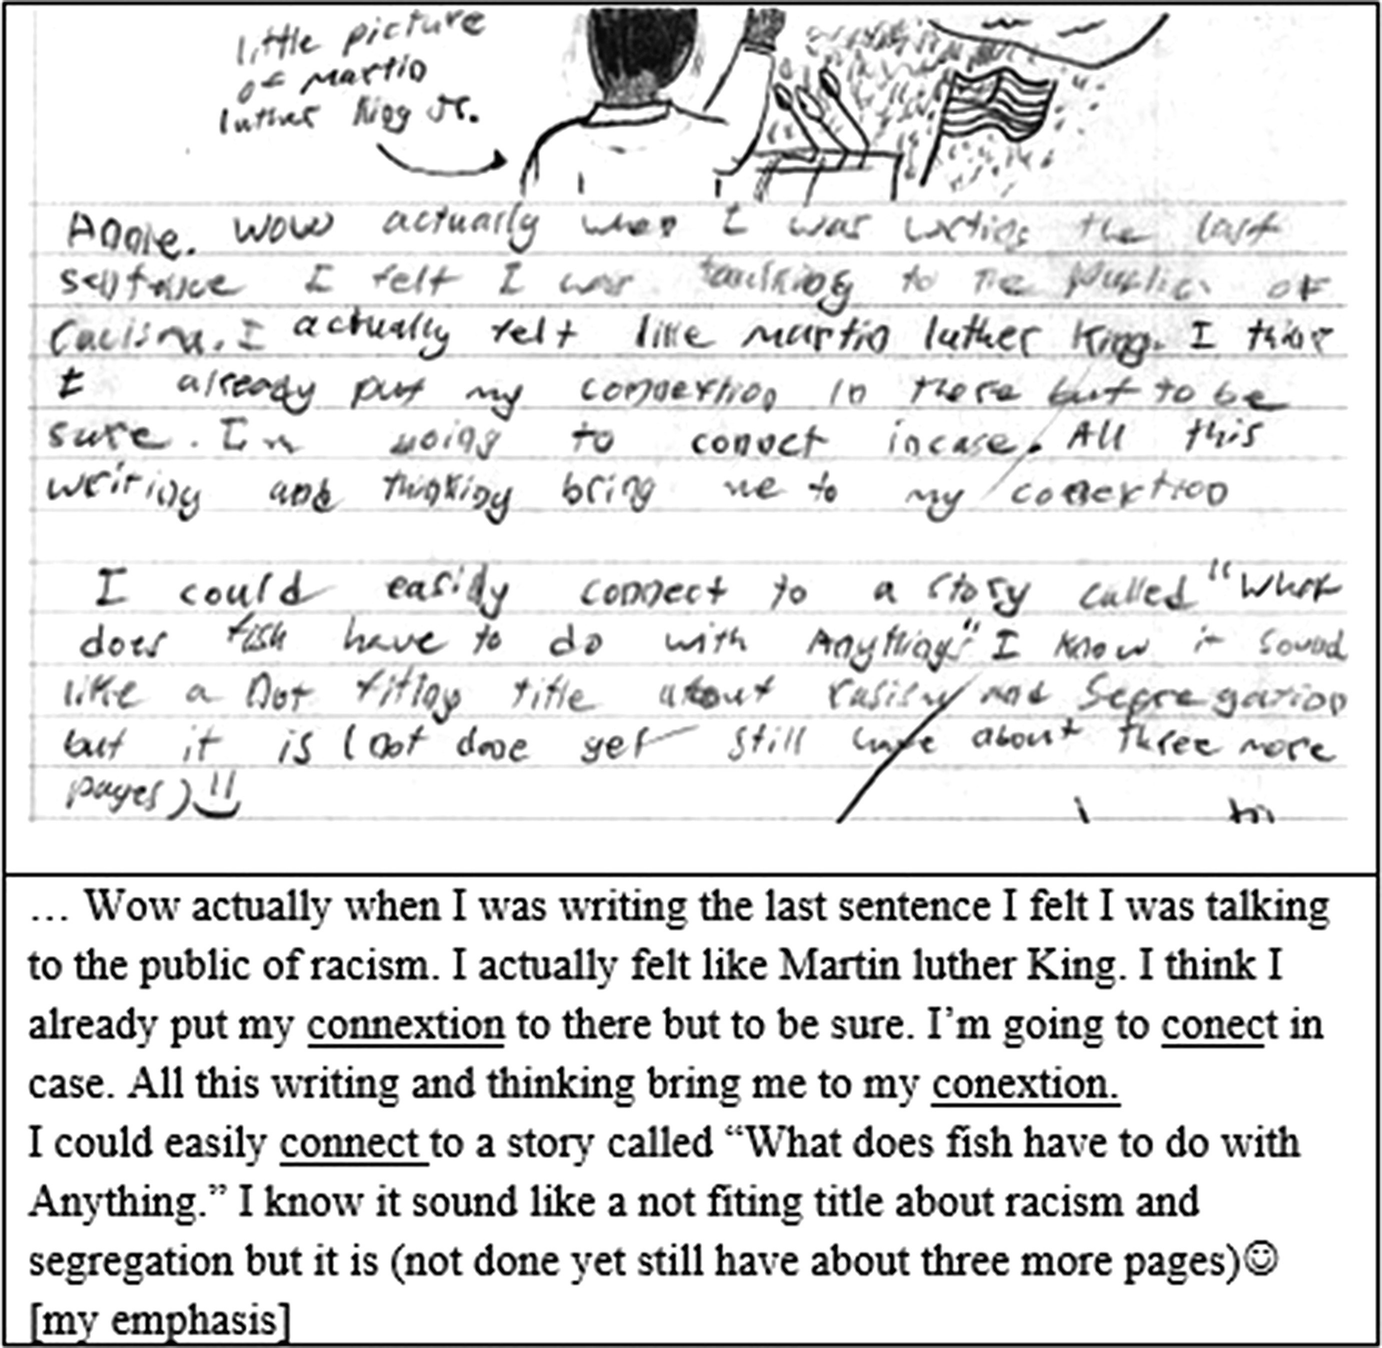 little picture
of martin
luther King Jr.
Anole. Wow actually when I was writing the last
sentence I felt I was taulking to the public of
racism. I actually felt like martin luther King. I think
I already put my connextion in there but to be
sure. Im going to conect incase. All this
writing and thinking bring me to my conextion
I could easidy connect to a story called "What
does fish have to do with Anything" I know it sound
like a not fiting title about rasism and Segregation
but it is (not done yet still have about three more
pages)
… Wow actually when I was writing the last sentence I felt I was talking
to the public of racism. I actually felt like Martin luther King. I think I
already put my connextion to there but to be sure. I'm going to conect in
case. All this writing and thinking bring me to my conextion.
I could easily connect to a story called “What does fish have to do with
Anything.” I know it sound like a not fiting title about racism and
segregation but it is (not done yet still have about three more pages)☺
[my emphasis]